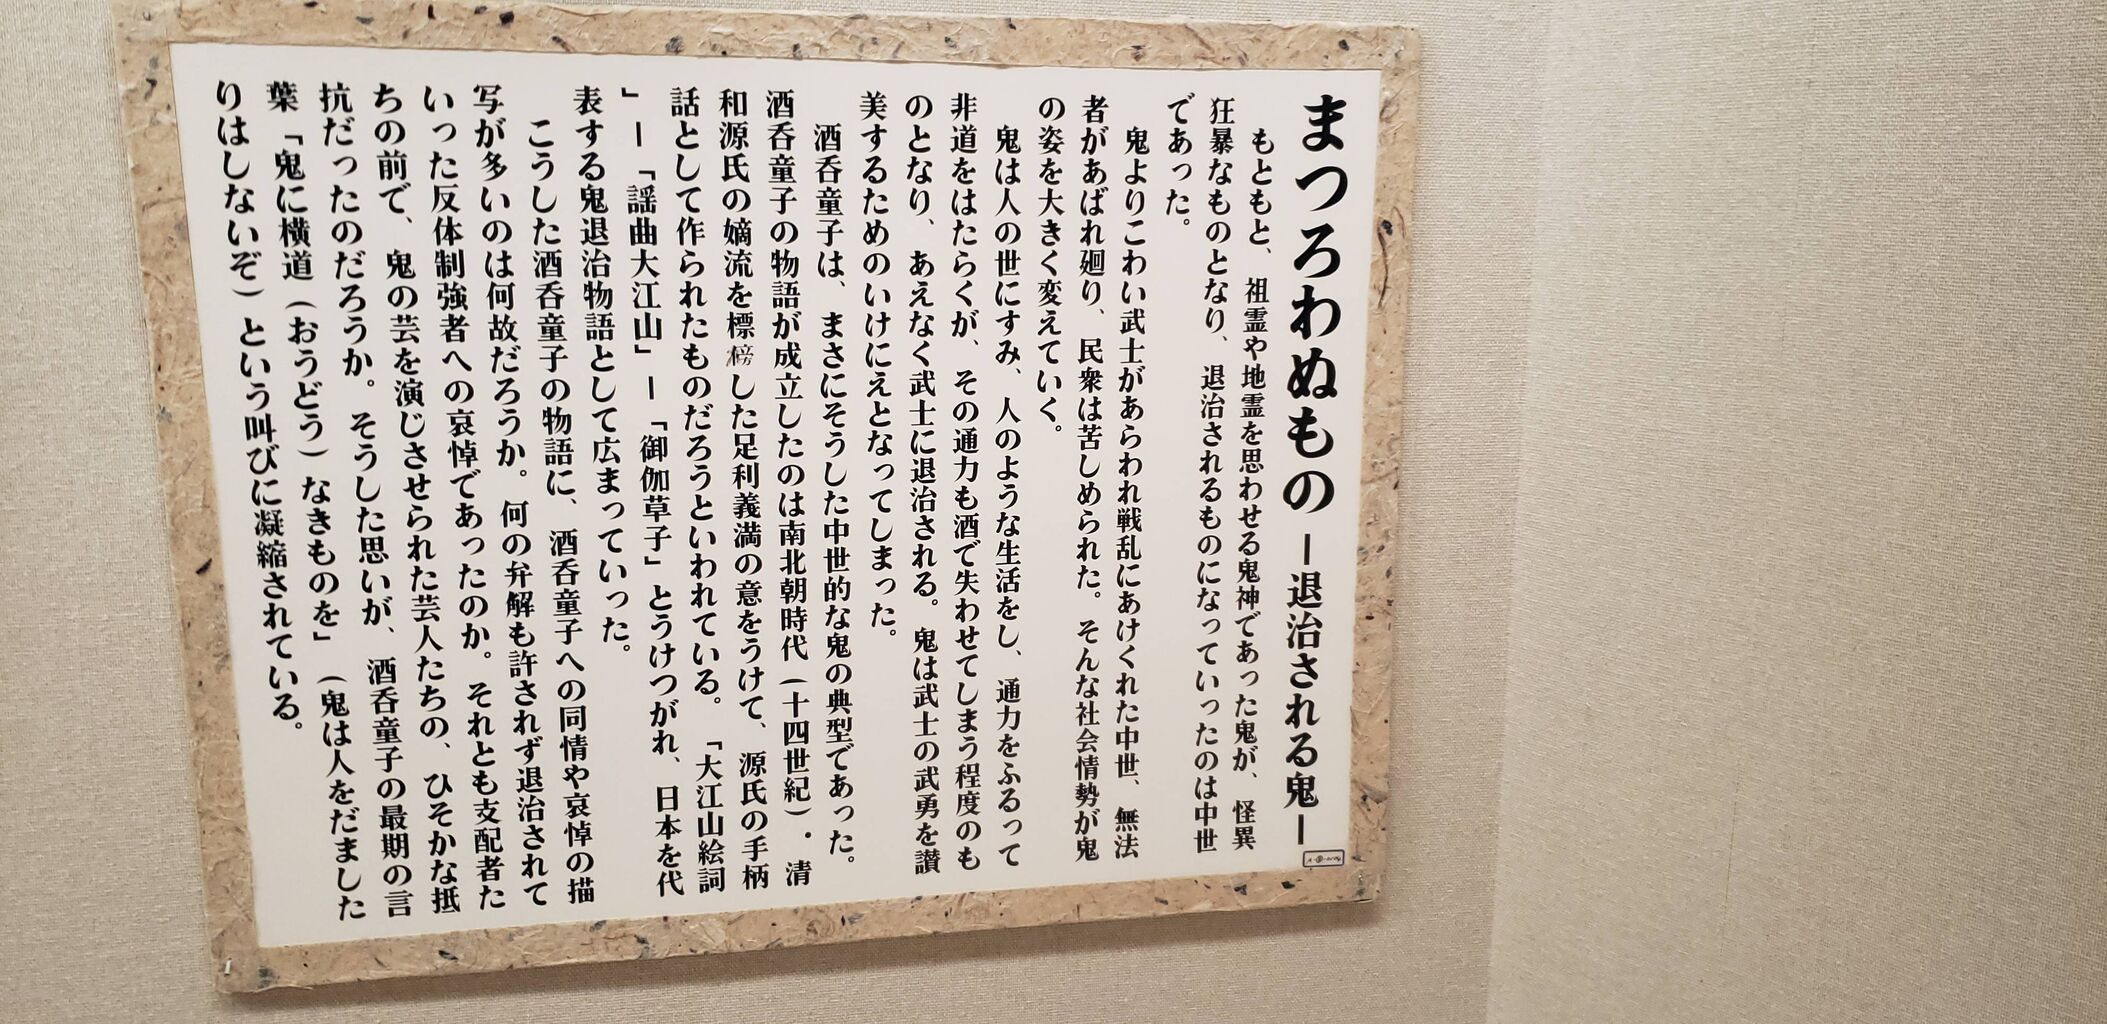 まつろわぬもの ー退治される鬼ー
もともと、祖霊や地霊を思わせる鬼神であった鬼が、怪異
狂暴なものとなり、退治されるものになっていったのは中世
であった。
鬼よりこわい武士があらわれ戦乱にあけくれた中世、無法
者があばれ廻り、民衆は苦しめられた。そんな社会情勢が鬼
の姿を大きく変えていく。
鬼は人の世にすみ、人のような生活をし、通力をふるって
非道をはたらくが、その通力も酒で失わせてしまう程度のも
のとなり、あえなく武士に退治される。鬼は武士の武勇を讃
美するためのいけにえとなってしまった。
酒呑童子は、まさにそうした中世的な鬼の典型であった。
酒呑童子の物語が成立したのは南北朝時代（十四世紀）。清
和源氏の嫡流を標榜した足利義満の意をうけて、源氏の手柄
話として作られたものだろうといわれている。「大江山絵詞
」ー「謡曲大江山」ー「御伽草子」とうけつがれ、日本を代
表する鬼退治物語として広まっていった。
こうした酒呑童子の物語に、酒呑童子への同情や哀悼の描
写が多いのは何故だろうか。何の弁解も許されず退治されて
いった反体制強者への哀悼であったのか。それとも支配者た
ちの前で、鬼の芸を演じさせられた芸人たちの、ひそかな抵
抗だったのだろうか。そうした思いが、酒呑童子の最期の言
葉「鬼に横道（おうどう）なきものを」（鬼は人をだました
りはしないぞ）という叫びに凝縮されている。